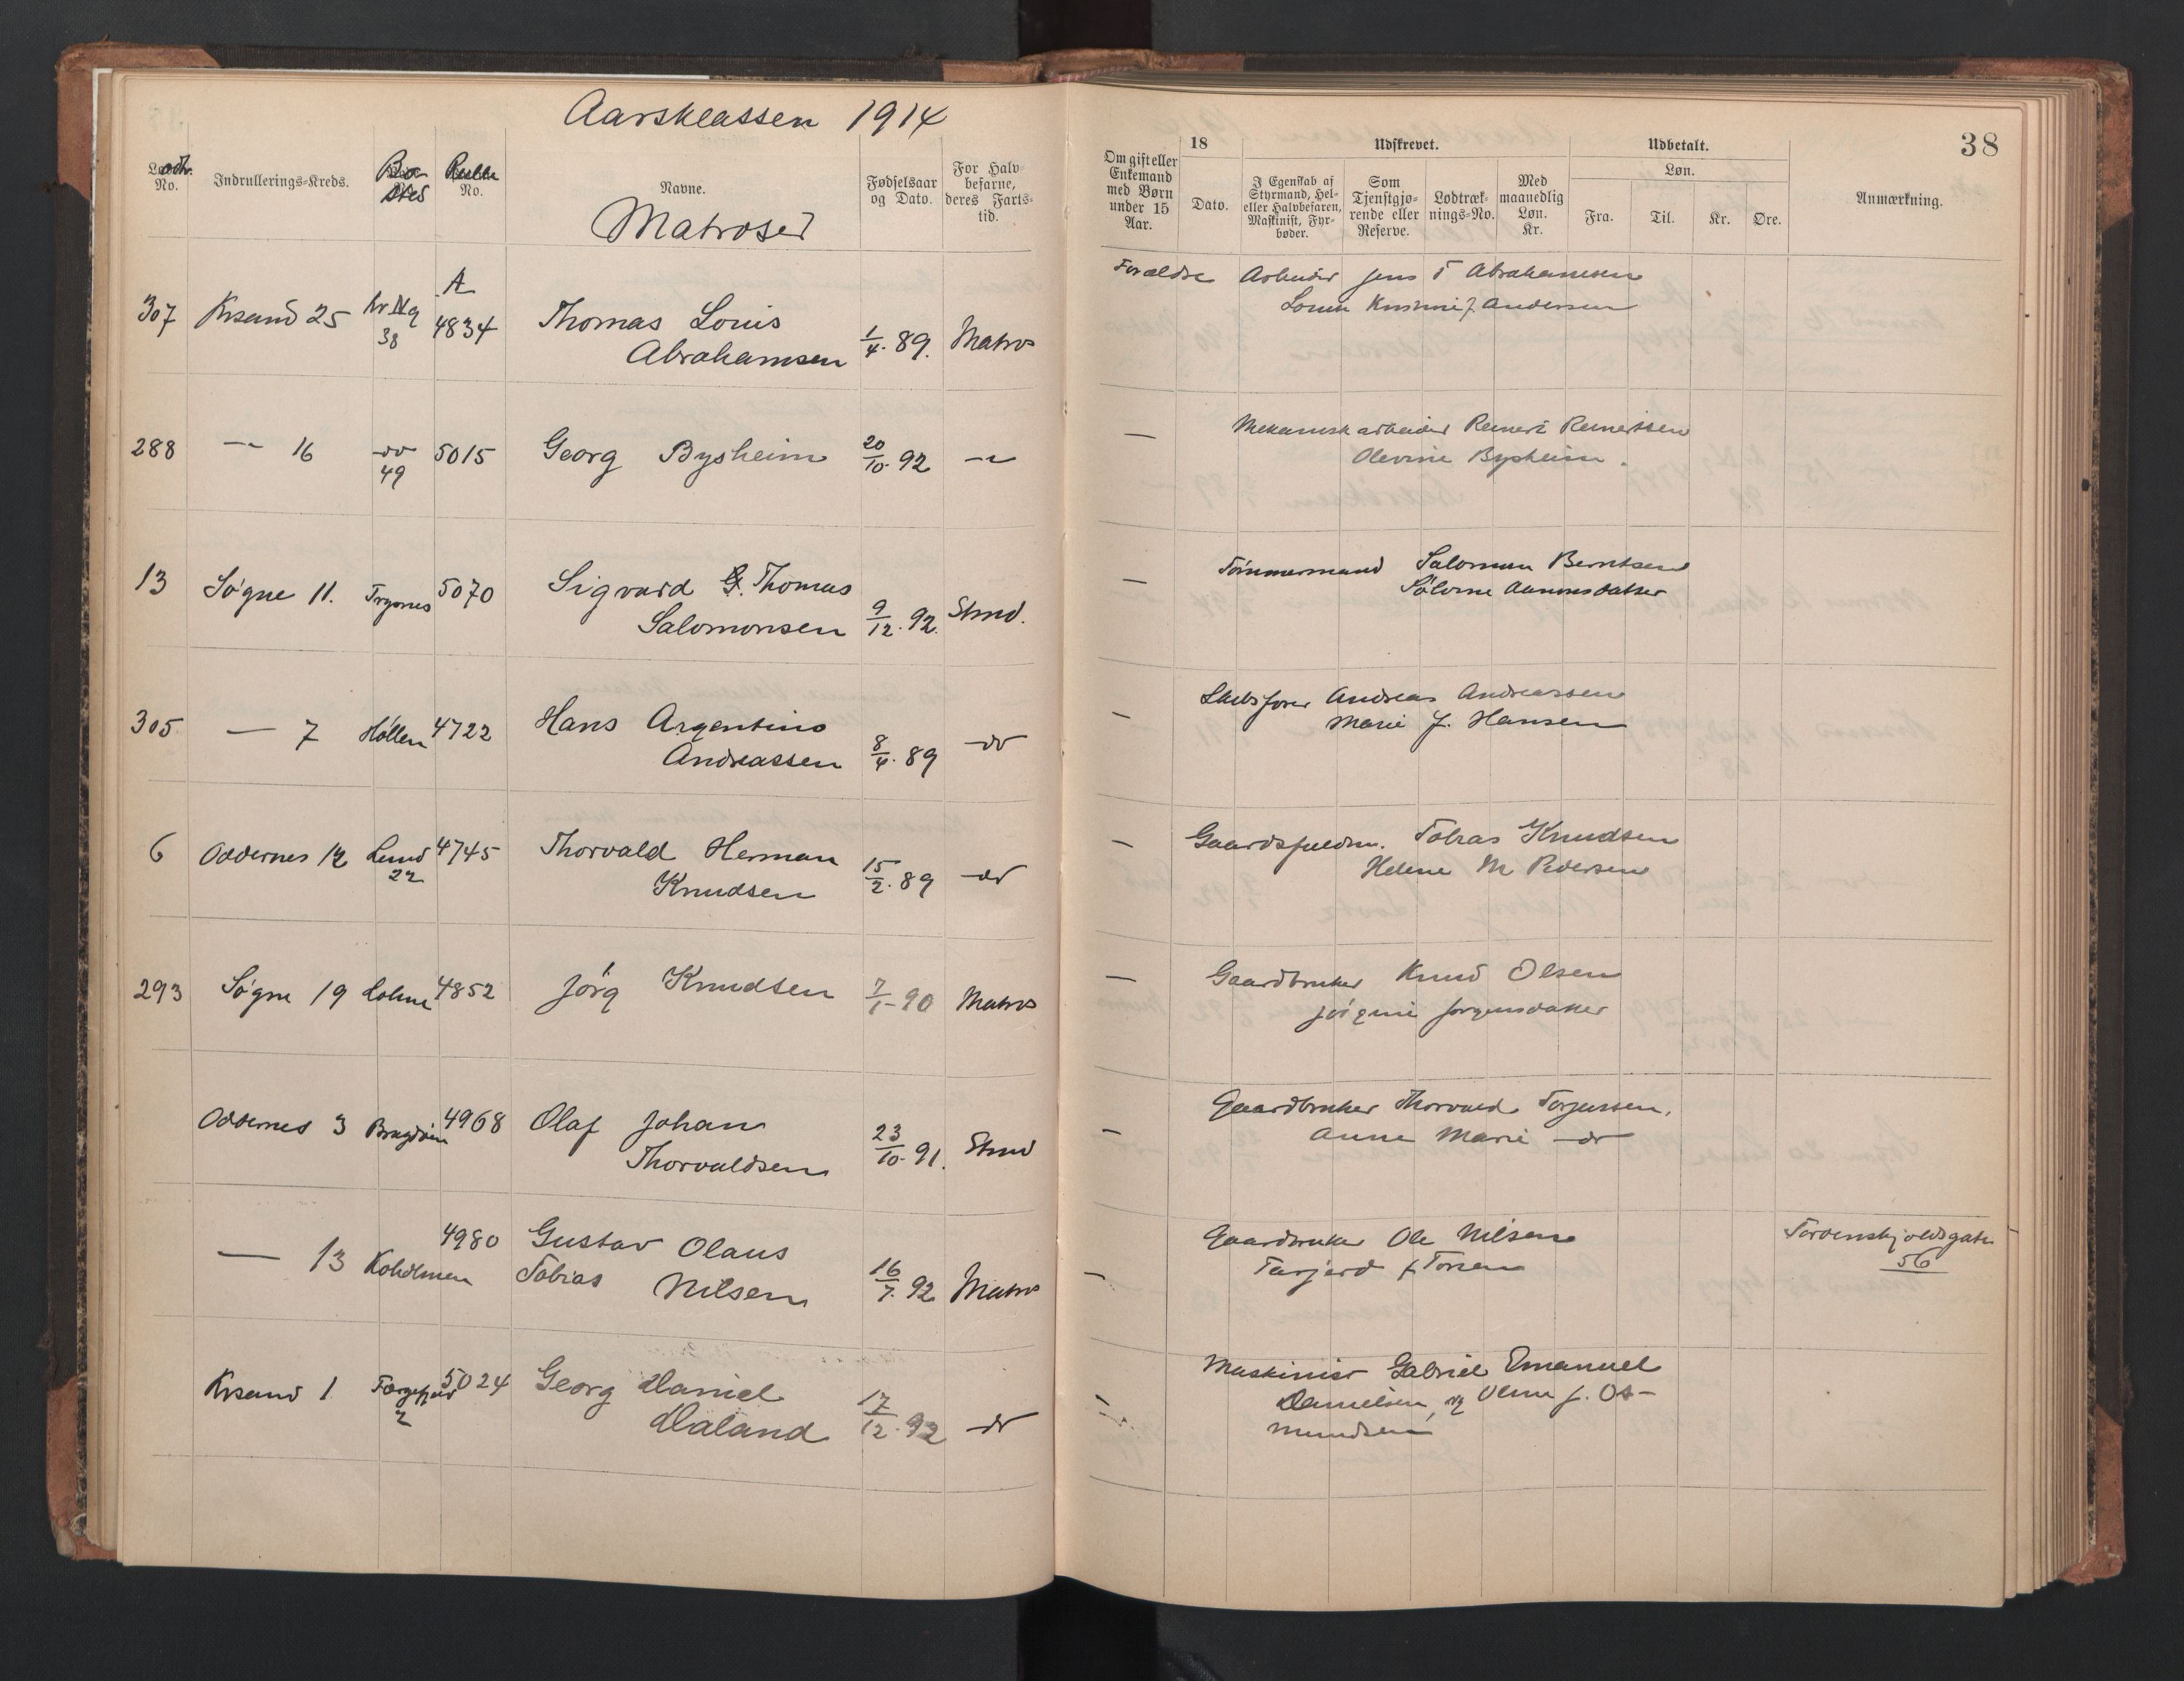 Aarsklassen 1914
38
Lodtr. No.
Indrullerings-Kreds.
Bo-
sted
Rulle
No.
Navne.
Matroser
Fødselsaar
og Dato.
For Halv-
befarne,
deres Farts-
tid.
Om gift eller
Enkemand
med Børn
under 15
Aar.
18
Dato.
Udskrevet.
I Egenskab af
Styrmand, Hel-
eller Halvbefaren,
Maskinist, Fyr-
bøder.
Som
Tjenstgjø-
rende eller
Reserve.
Lodtræk-
nings-No.
Med
maanedlig
Løn.
Kr.
Udbetalt.
Løn.
Fra.
Til.
Kr.
Øre.
Anmærkning.
A
307 Krsand 25 38 4834 Thomas Louis
Abrahamsen 1/4. 89. Matros
Forældre Arbeider Jens T Abrahamsen
Andersen
288 — 16 do 49 5015 Georg Bysheim 20/10. 92 —
— Mekanisk arbeider Reinert Reinertsen
Olevine Bysheim.
13 Søgne 11. Trysnes 5070 Sigvard G. Thomas
Salomonsen 9/12. 92. Stmd.
— Tømmermand Salomon Berntsen
305 — 7 Høllen 4722 Hans Argentino
Andreassen 8/4. 89 do
— Skibsfører Andreas Andreassen
Marie J. Hansen
6 Oddernes 12 Lund 22 4745 Thorvald Herman
Knudsen 15/2. 89 do
— Gaardsfuldm. Tobias Knudsen
Helene M Pedersen
293 Søgne 19 Lohne 4852 Jørg Knudsen 7/1-90 Matros
— Gaardbruker Knud Olsen
Jørgine Jørgensdatter
Oddernes 3 Bragdøen 4968 Olaf Johan
Thorvaldsen 23/10. 91. Stmd
— Gaardbruker Thorvald Torjussen.
Anne Marie do
— 13 Koholmen 4980 Gustav Olaus
Tobias Nilsen 16/7. 92 Matros
— Gaardbruker Ole Nilsen
Tordenskjoldsgate
56
Krsand 1 2 5024 Georg Daniel
Daland 17/12. 92 do
— Maskinist Gabriel Emanuel
Danielsen og J. Os-
mundsen